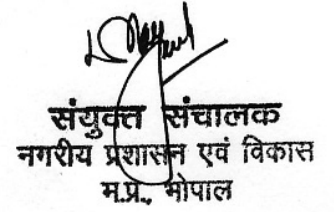 संयुक्त संचालक
नगरीय प्रशासन एवं विकास
म.प्र., भोपाल